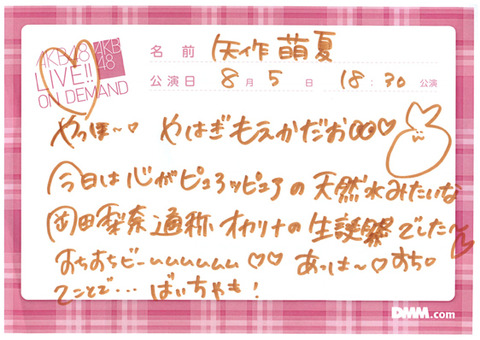 AKB48
LIVE!!
ON DEMAND
AKB
48
名前 矢作萌夏
公演日 8月5日 18:30公演
やっほ〜♡ やはぎもえかだお♡
今日は心がピュアッピュアの天然水みたいな
岡田梨奈通称オカリナの生誕祭でした〜
おちおちビームムムムム♡♡ あっは〜♡おち。
てことで…ばいちゃも!
DMM.com